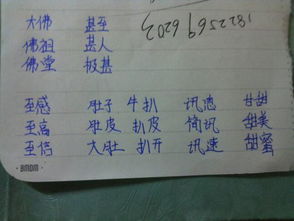 大佛 甚至
佛祖 甚人
佛堂 极甚
至感 肚子 牛扒 讯息 甘甜
至高 肚皮 扒皮 简讯 甜美
至信 大肚 扒开 讯速 甜蜜
BMDM